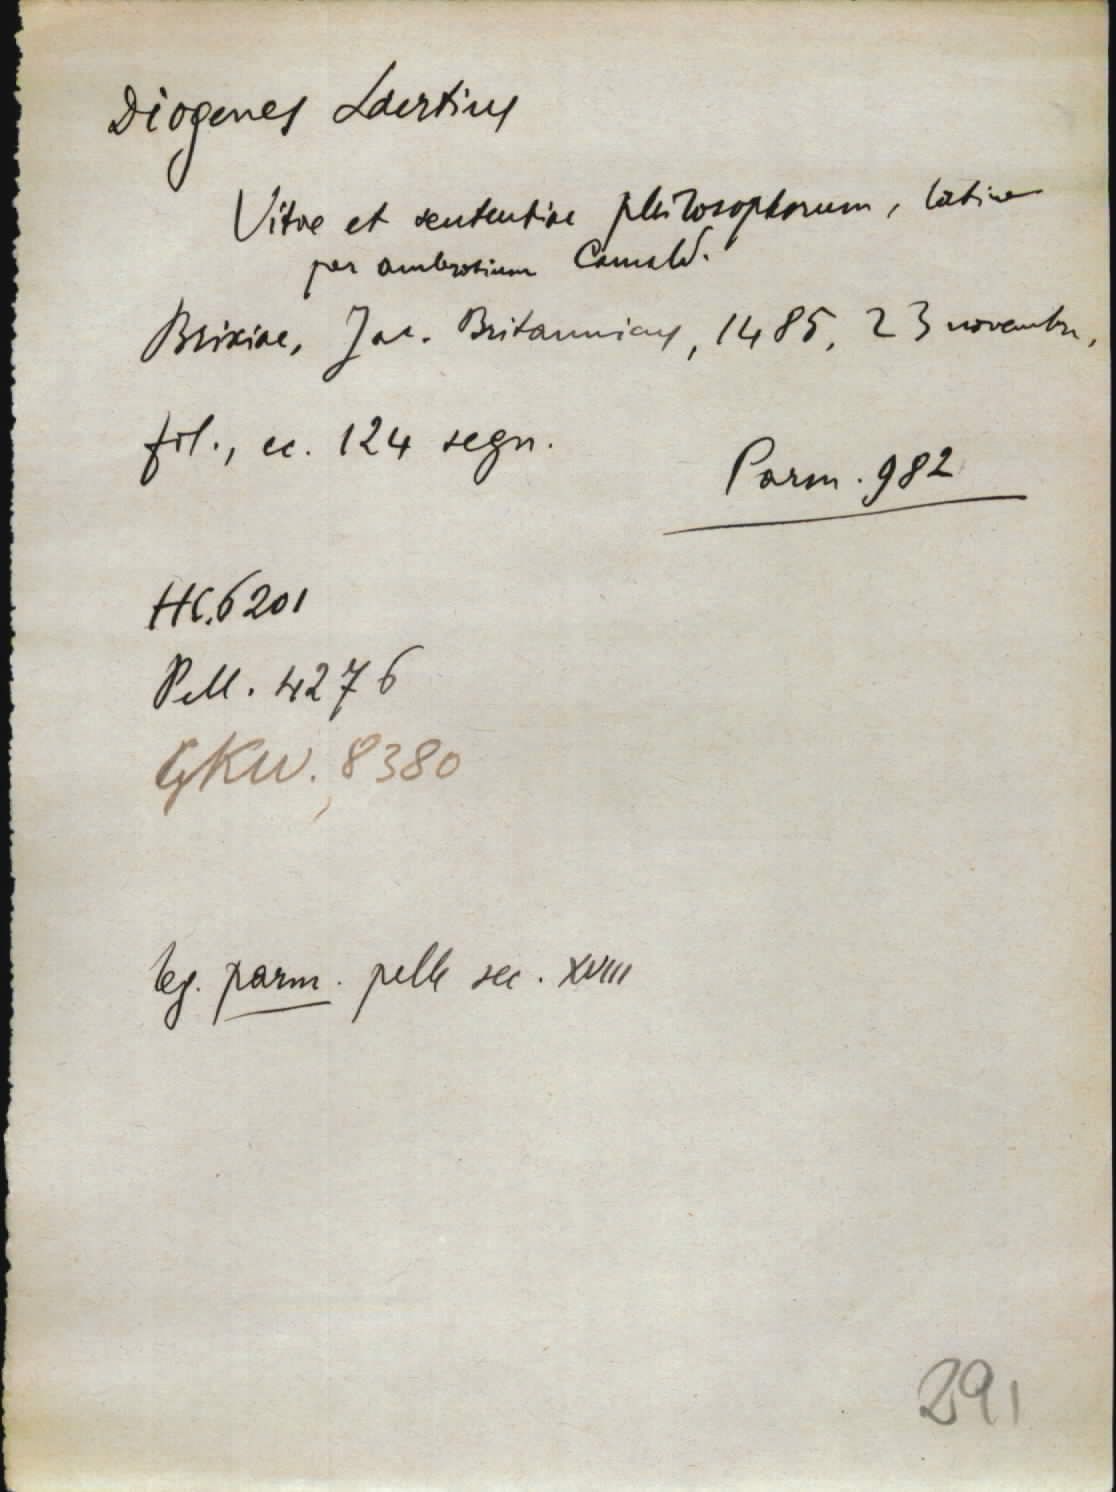 Diogenes Laertius
Vitae et sententiae philosophorum, latine
per ambrosium Camald.
Brixiae, Jac. Britannicus, 1485, 23 novembre,
fol., cc. 124 segn.
Parm. 982
HC.6201
Pell. 4276
GKW. 8380
leg. parm. pelle sec. XVIII
291